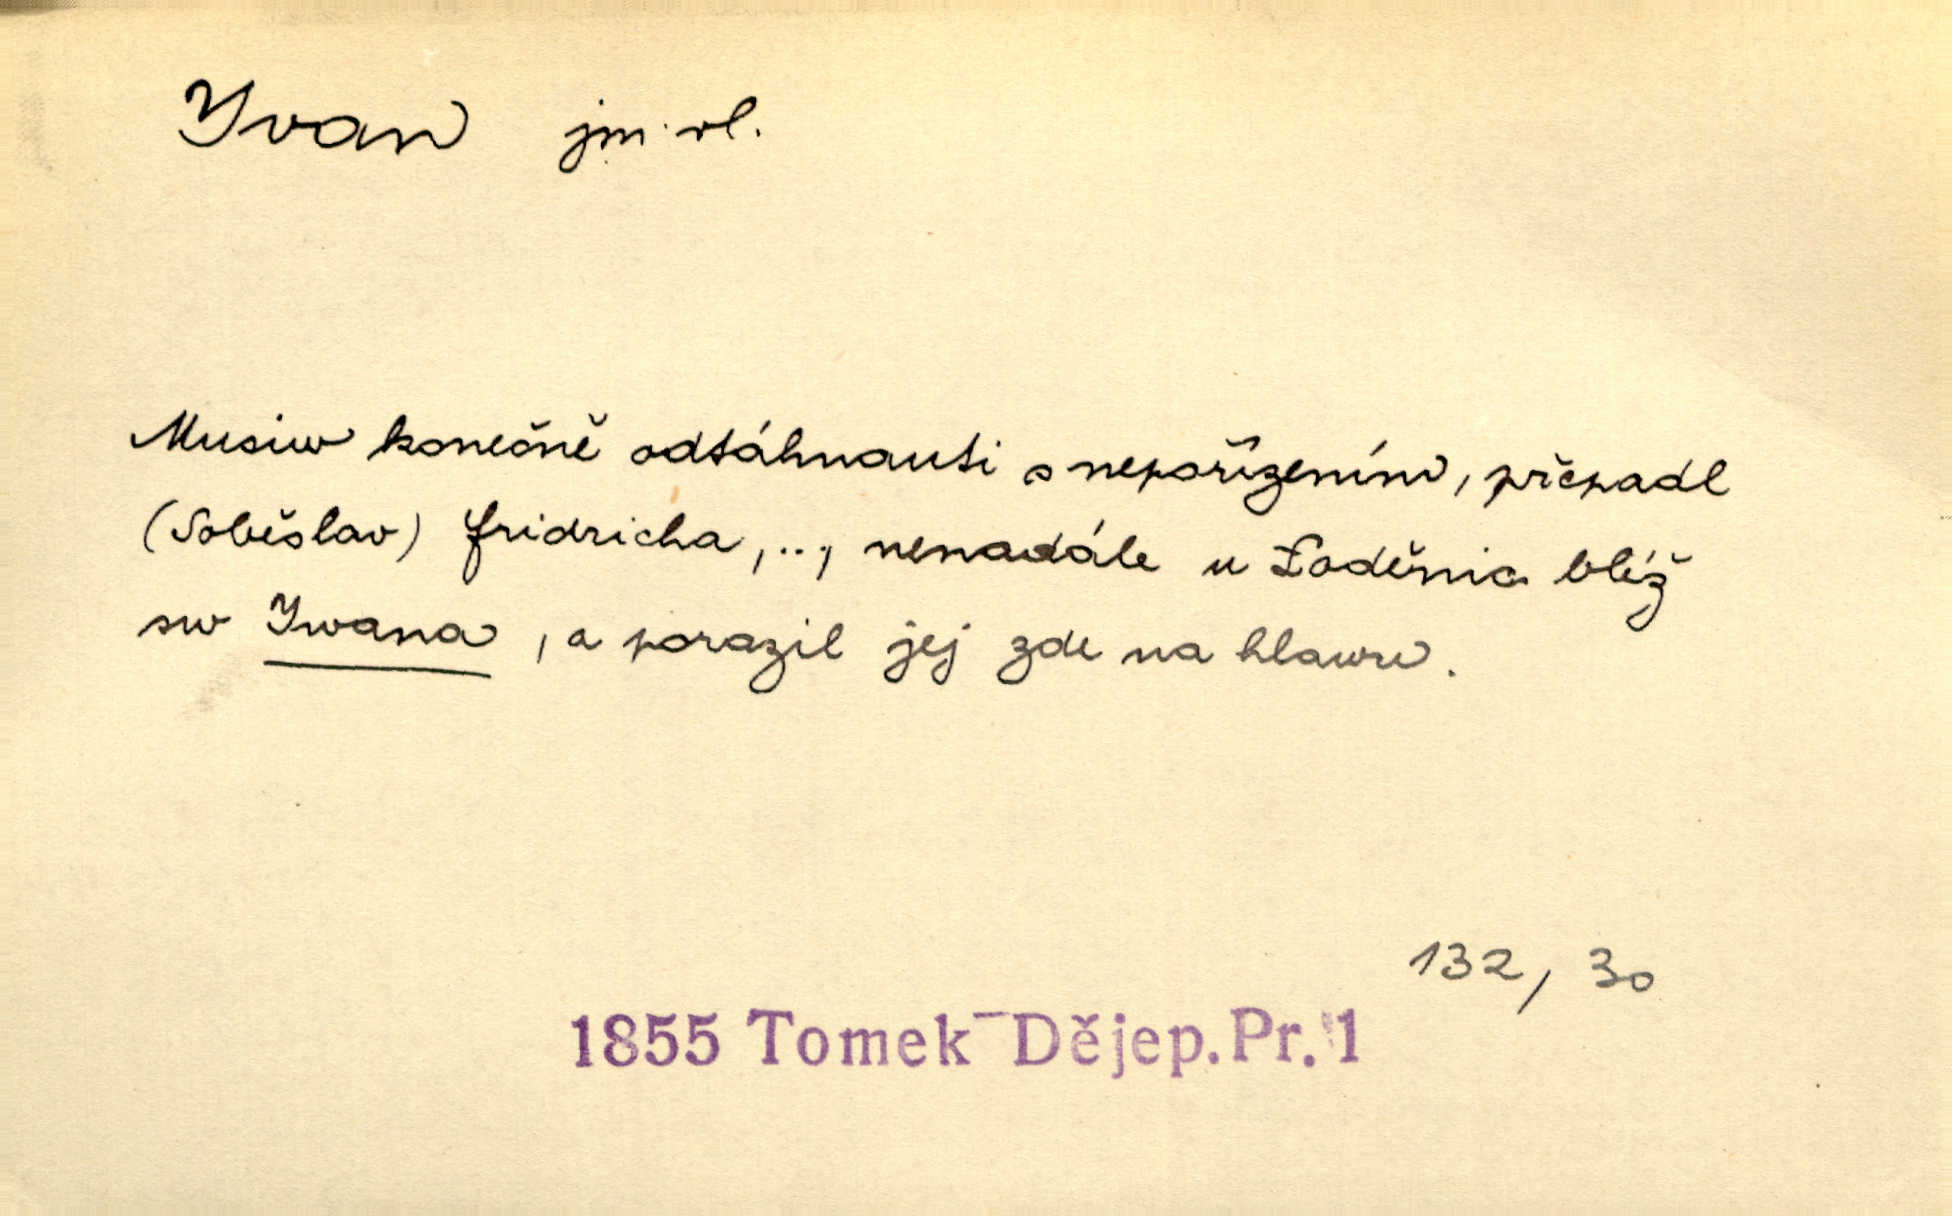 Ivan jm. vl.
Musiw konečně odtáhnauti s nepořízením, přepadl
(Soběslav) Fridricha, .., nenadále u Loděnic blíž
sw Iwana, a porazil jej zde na hlawu.
132, 30
1855 Tomek - Dějep. Pr. 1